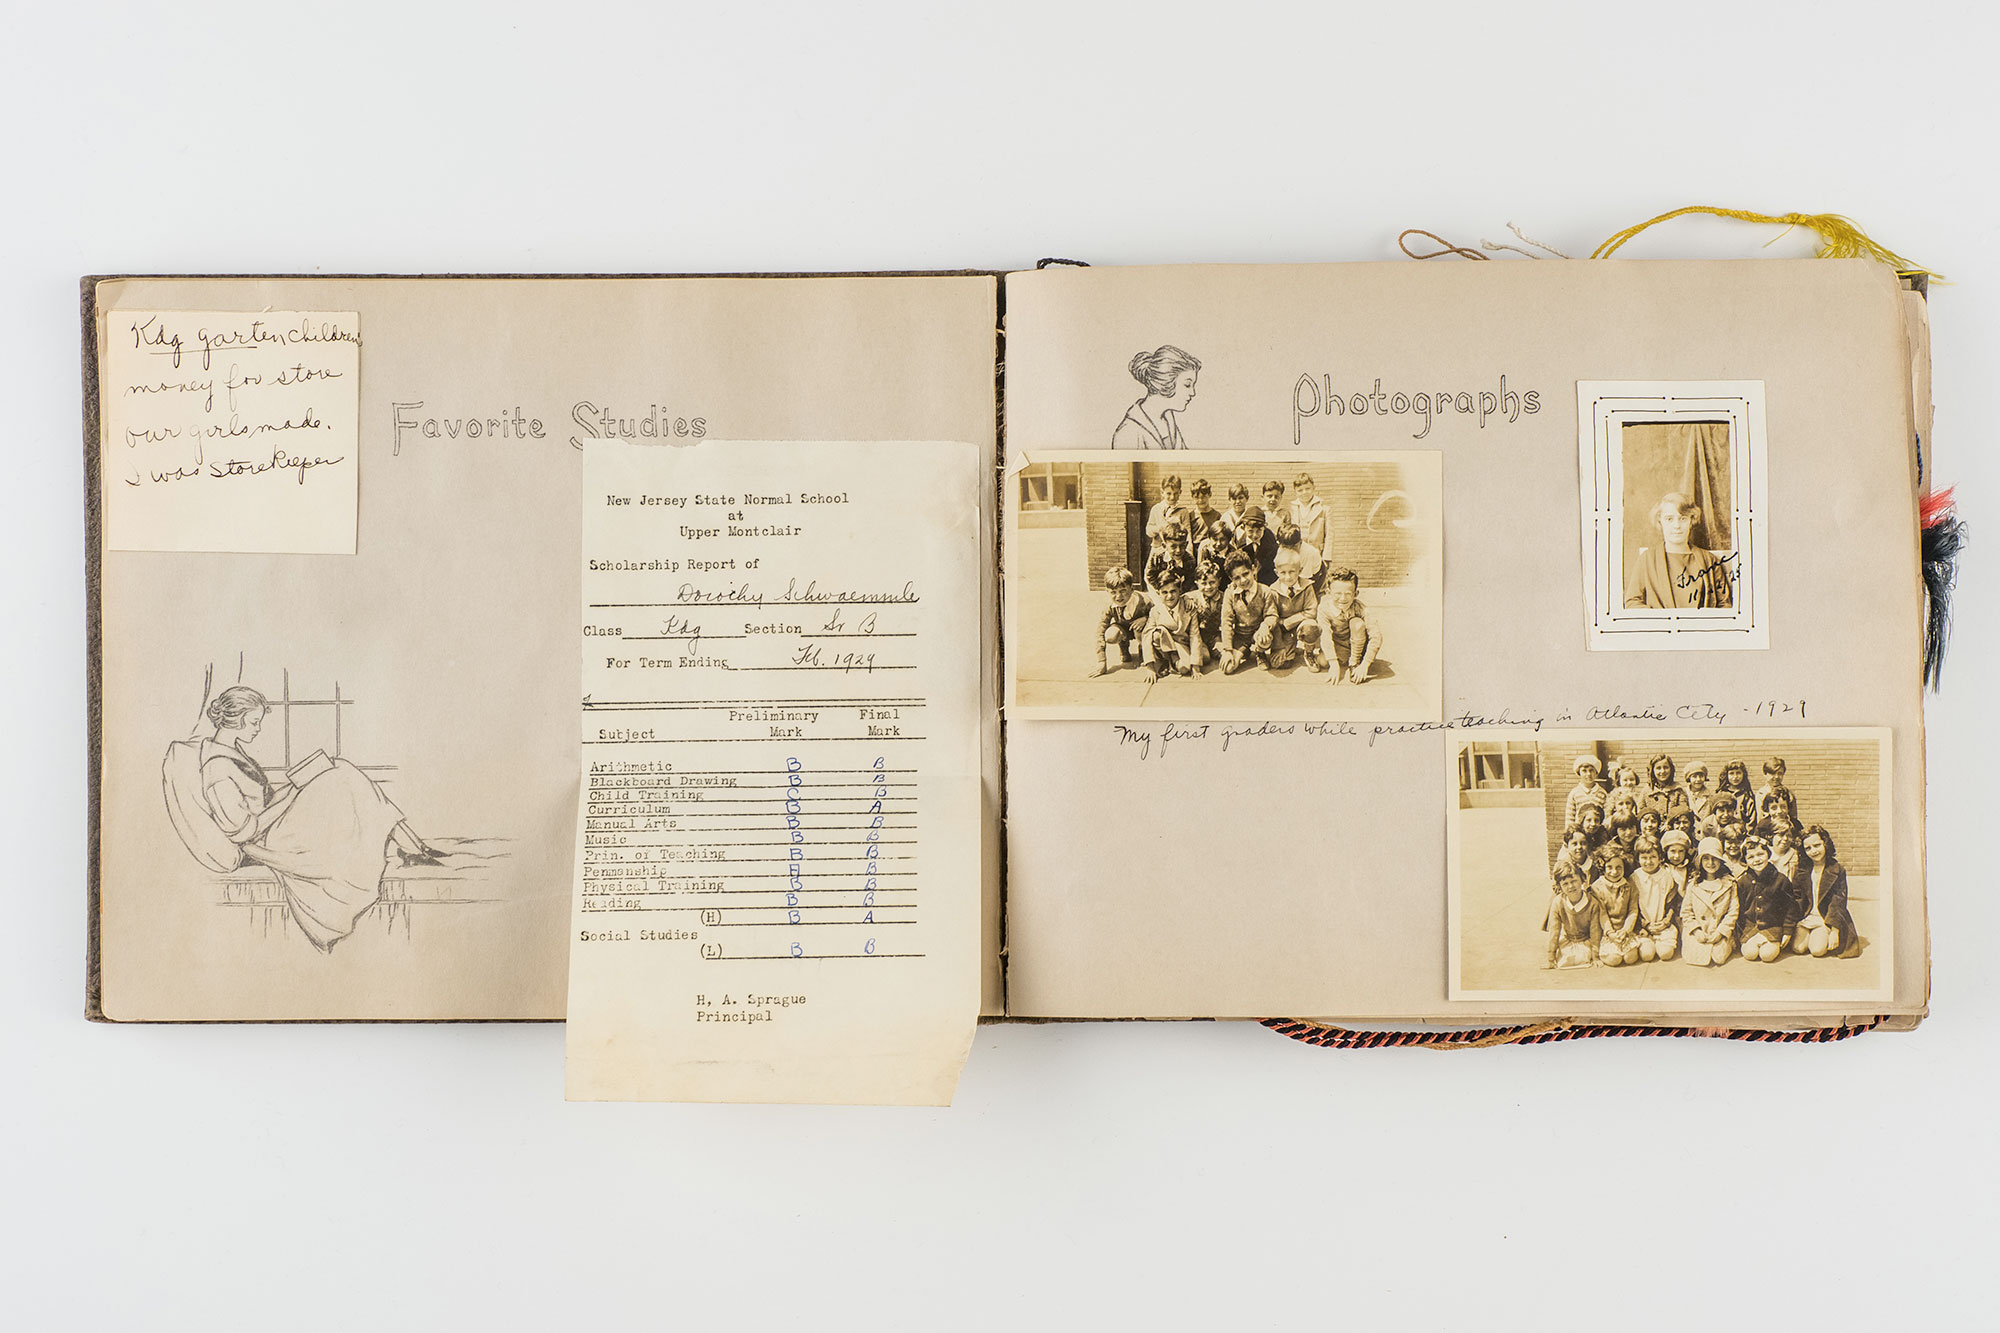 Kdg garten children
money for store
our girls made.
I was Storekeeper
Favorite Studies
New Jersey State Normal School
at
Upper Montclair
Scholarship Report of
Dorothy Schwaemmle
Class Kdg Section Sr B
For Term Ending Feb. 1929
Preliminary Final
Subject Mark Mark
Arithmetic B B
Blackboard Drawing B B
Child Training C B
Curriculum B A
Manual Arts B B
Music B B
Prin. of Teaching B B
Penmanship B B
Physical Training B B
Reading B B
(H) B A
Social Studies
(L) B B
H, A. Sprague
Principal
Photographs
Franc
My first graders while practice teaching in Atlantic City - 1929